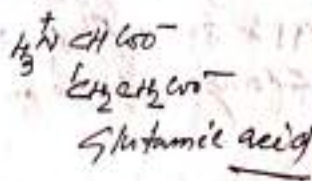 H₃N⁺ CH COO⁻
CH₂CH₂COO⁻
Glutamic acid